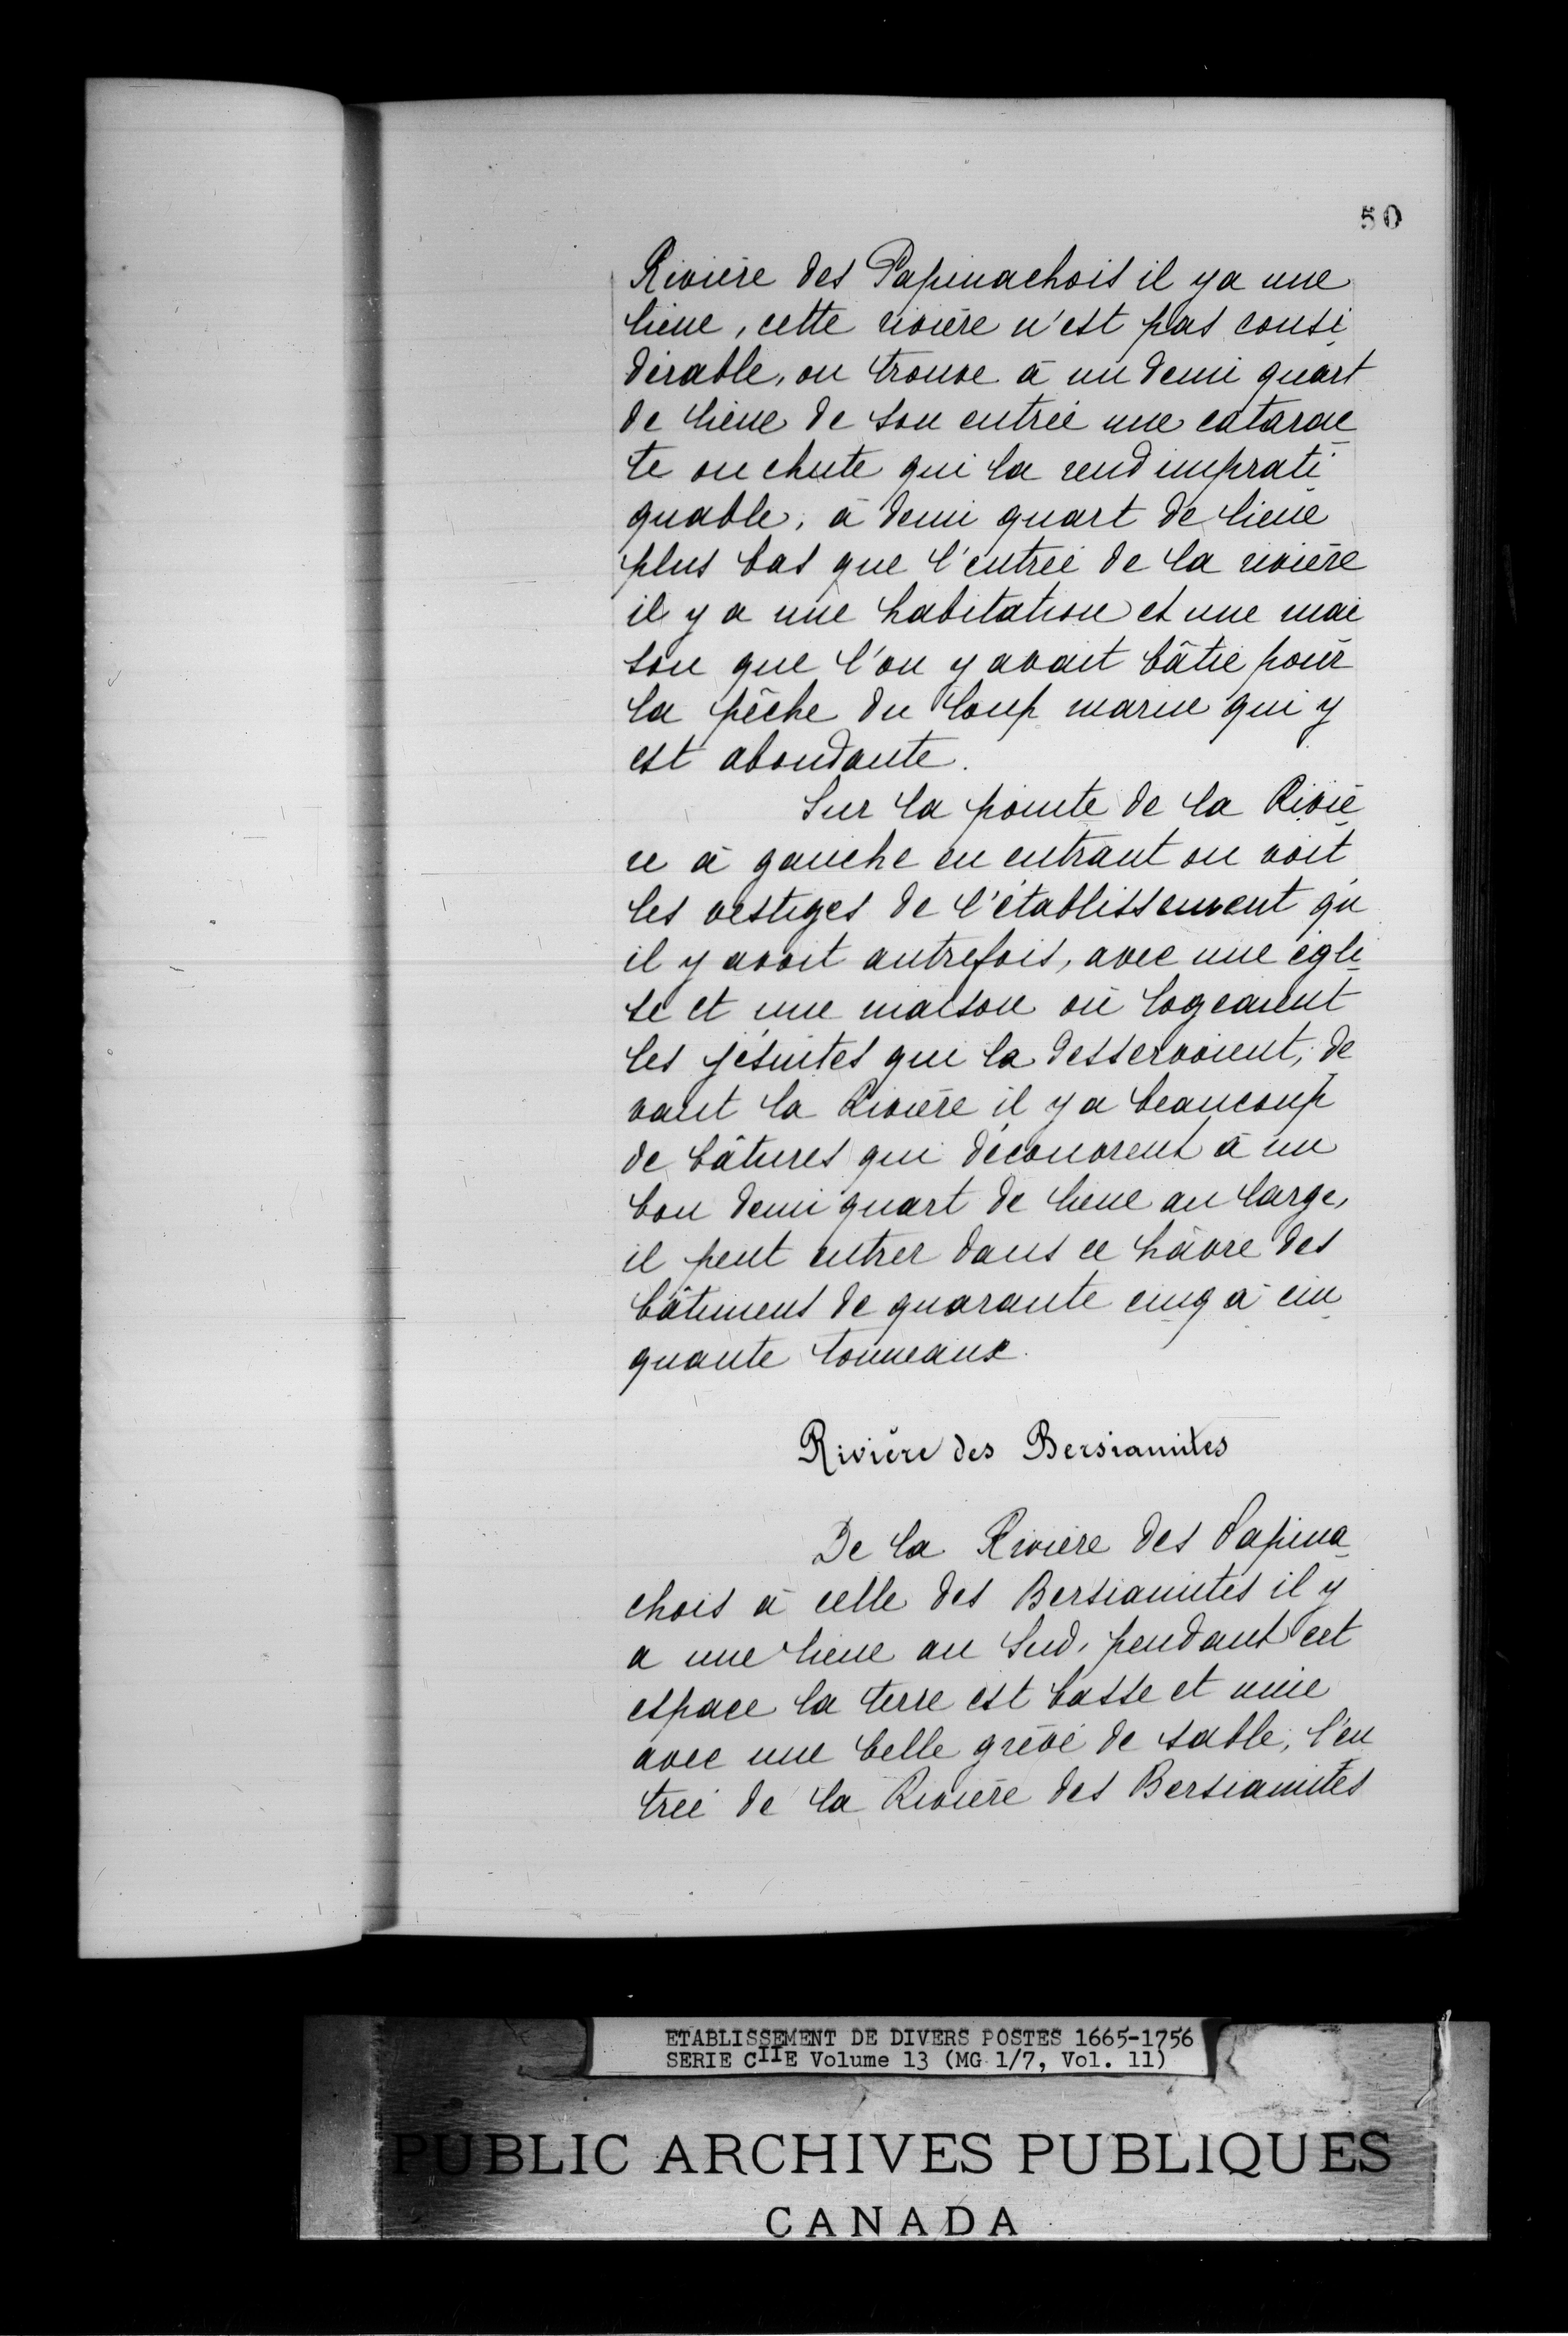 50
Rivière des Papinachois il y a une
lieue, cette rivière n'est pas consi
dérable, on trouve à un demi quart
de lieue de son entrée une catarac
te ou chute qui la rend imprati
quable, à demi quart de lieue
plus bas que l'entrée de la rivière
il y a une habitation et une mai
son que l'on y avait bâtie pour
la pêche du loup marin qui y
est abondante.
Sur la pointe de la Riviè
re à gauche en entrant on voit
les vestiges de l'établissement qu
il y avoit autrefois, avec une égli
se et une maison où logeaient
les jésuites qui la desservoient, de
vant la Rivière il y a beaucoup
de bâtures qui découvrent à un
bon demi quart de lieue au large,
il peut entrer dans ce hâvre des
bâtimens de quarante cinq à cin
quante tonneaux.
Rivière des Bersiamites
De la Rivière des Papina
chois à celle des Bersiamites il y
a une lieue au Sud, pendant cet
espace la terre est basse et unie
avec une belle grève de sable, l'en
trée de la Rivière des Bersiamites
ETABLISSEMENT DE DIVERS POSTES 1665-1756
SERIE CIIE Volume 13 (MG 1/7, Vol. 11)
PUBLIC ARCHIVES PUBLIQUES
CANADA